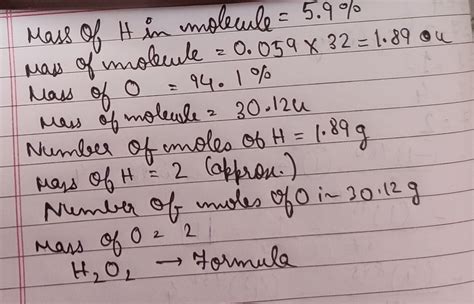 Mass of H in molecule = 5.9%
Mass of molecule = 0.059 × 32 = 1.89 ou
Mass of O = 94.1%
Mass of molecule = 30.12u
Number of moles of H = 1.89g
Mass of H = 2 (approx.)
Number of moles of O in 30.12g
Mass of O = 2
H2O2 → Formula